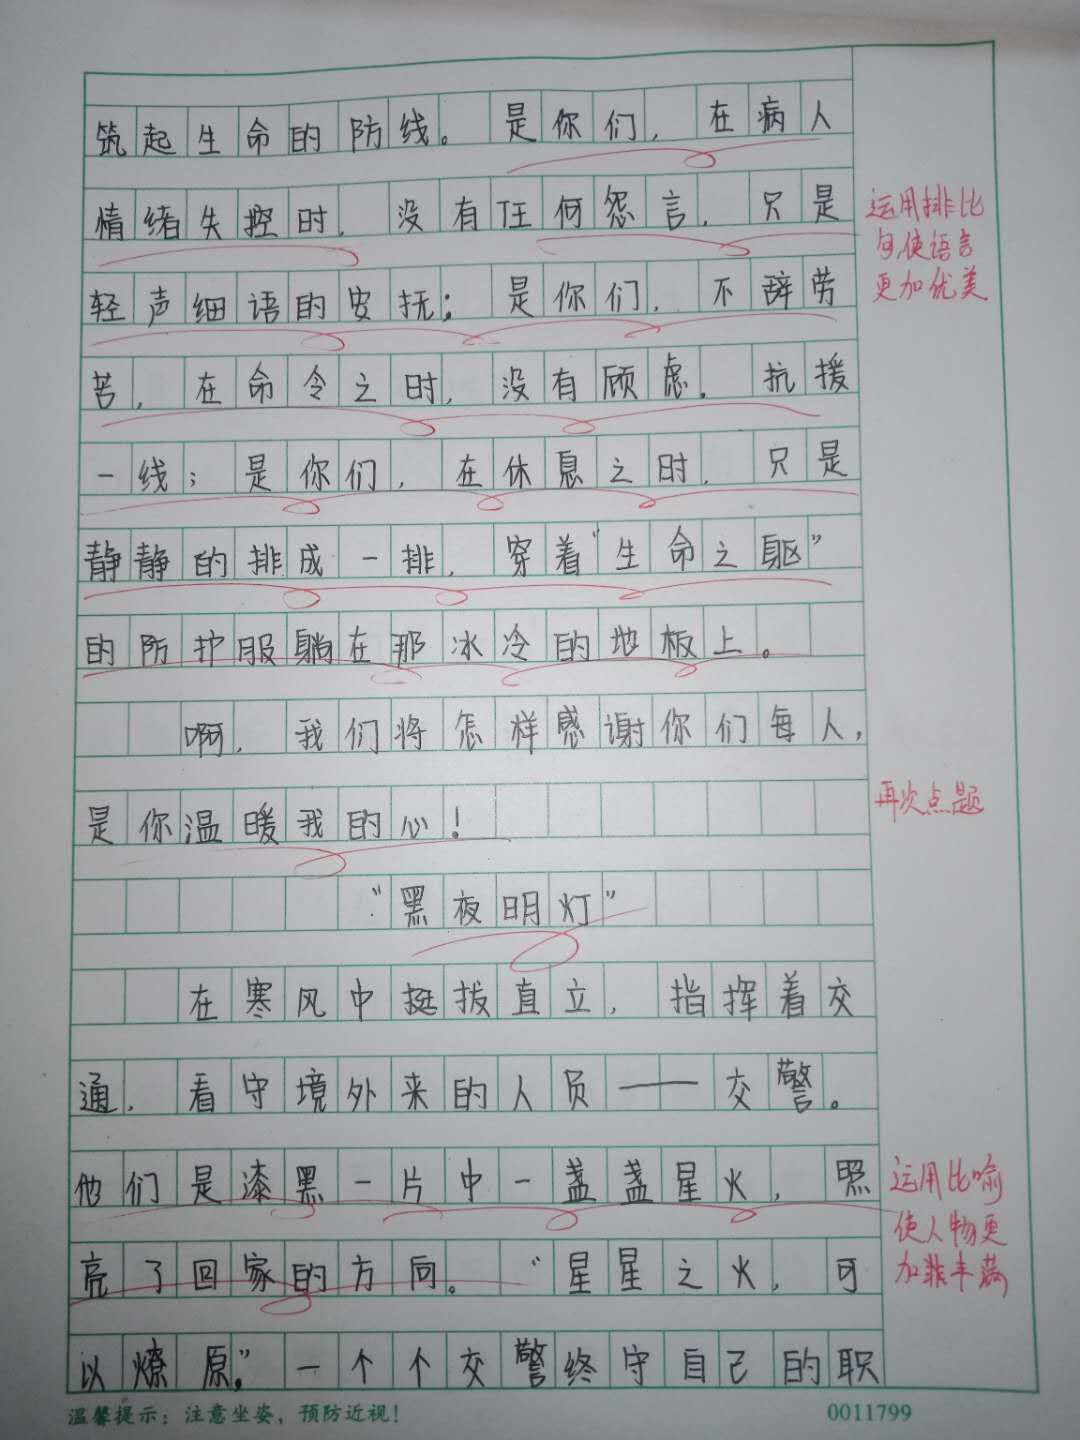 筑起生命的防线。是你们，在病人
情绪失控时，没有任何怨言，只是
运用排比
句，使语言
更加优美
轻声细语的安抚；是你们，不辞劳
苦，在命令之时，没有顾虑，抗援
一线；是你们，在休息之时，只是
静静的排成一排，穿着“生命之躯”
的防护服躺在那冰冷的地板上。
啊，我们将怎样感谢你们每人，
是你温暖我的心！
再次点题
“黑夜明灯”
在寒风中挺拔直立，指挥着交
通，看守境外来的人员——交警。
他们是漆黑一片中一盏盏星火，照
运用比喻
使人物更
加丰满
亮了回家的方向。“星星之火，可
以燎原。”一个个交警终守自己的职
温馨提示：注意坐姿，预防近视！
0011799